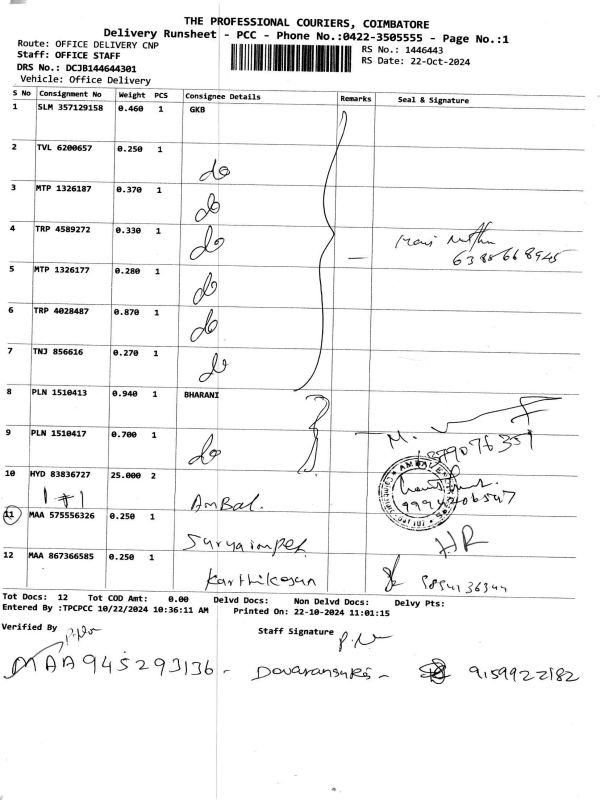 THE PROFESSIONAL COURIERS, COIMBATORE
Delivery Runsheet - PCC - Phone No.:0422-3505555 - Page No.:1
Route: OFFICE DELIVERY CNP
RS No.: 1446443
Staff: OFFICE STAFF
RS Date: 22-Oct-2024
DRS No.: DCJB144644301
Vehicle: Office Delivery
S No Consignment No Weight PCS Consignee Details Remarks Seal & Signature
1 SLM 357129158 0.460 1 GKB
2 TVL 6200657 0.250 1 do
3 MTP 1326187 0.370 1 do
4 TRP 4589272 0.330 1 do
6385668945
5 MTP 1326177 0.280 1 do
6 TRP 4028487 0.870 1 do
7 TNJ 856616 0.270 1 do
8 PLN 1510413 0.940 1 BHARANI
M.
9 PLN 1510417 0.700 1 do
10 HYD 83836727 25.000 2 AmBal.
1+1
11 MAA 575556326 0.250 1 Suryaimpex
HR
12 MAA 867366585 0.250 1 Karthikesan
Tot Docs: 12 Tot COD Amt: 0.00 Delvd Docs: Non Delvd Docs: Delvy Pts:
Entered By :TPCPCC 10/22/2024 10:36:11 AM Printed On: 22-10-2024 11:01:15
Verified By
Staff Signature
MAA945293136 - 9159922182